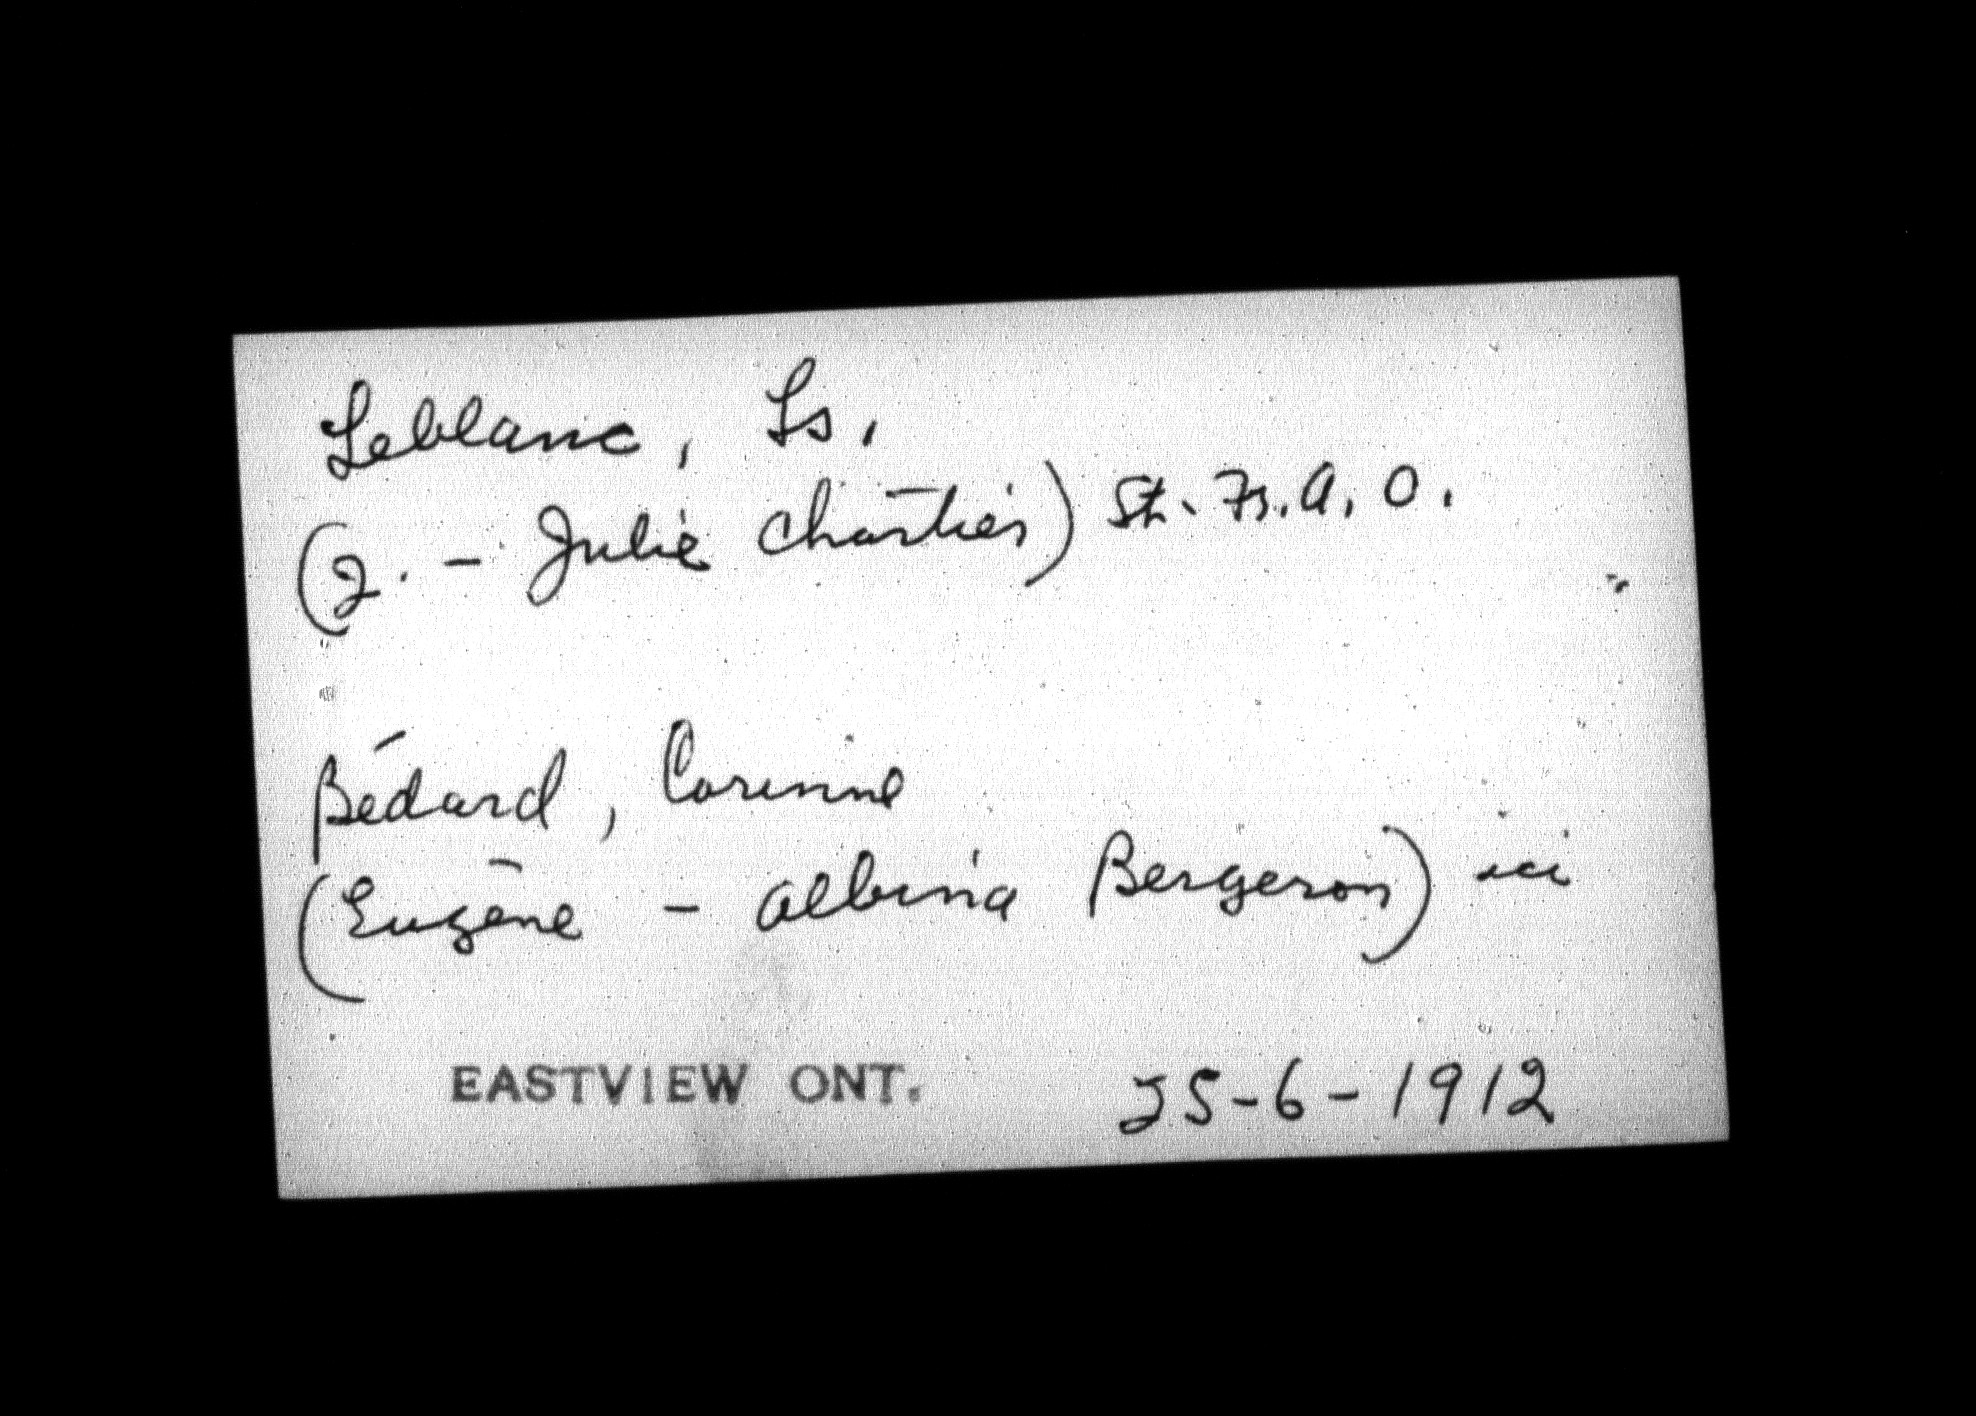 Leblanc, Ls,
(J. - Julie Chartier) St. Frs. A. O.
Bédard, Corinne
(Eugène - Albina Bergeron) ici
EASTVIEW ONT. 25-6-1912